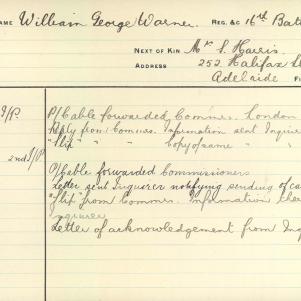 NAME William George Warner. REG. &C 16th Batt
NEXT OF KIN Mr S. Harris.
ADDRESS 252 Halifax St
Adelaide
P/Cable forwarded Commrs. London
Reply from Commrs. Information sent Inquirer
"Slip" " " Copy of same "
2nd I/P. P/Cable forwarded Commissioners
Letter sent Inquirer notifying sending of ca
"Slip" from Commrs. Information
Inquirer
Letter of acknowledgement from Inq